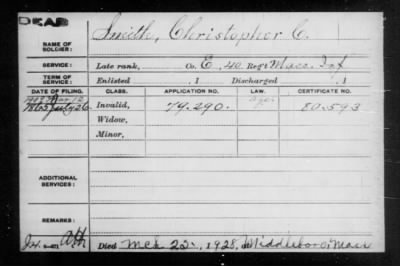 DEAD
NAME OF SOLDIER: Smith, Christopher C.
SERVICE: Late rank, Co. E, 40 Reg't Mass. Inf
TERM OF SERVICE: Enlisted , 1 Discharged , 1
DATE OF FILING. CLASS. APPLICATION NO. LAW. CERTIFICATE NO.
1865 July 26 Invalid, 79.290. 80.593
Widow,
Minor,
ADDITIONAL SERVICES:
REMARKS:
Died Mch 22, 1928, at Middleboro, Mass